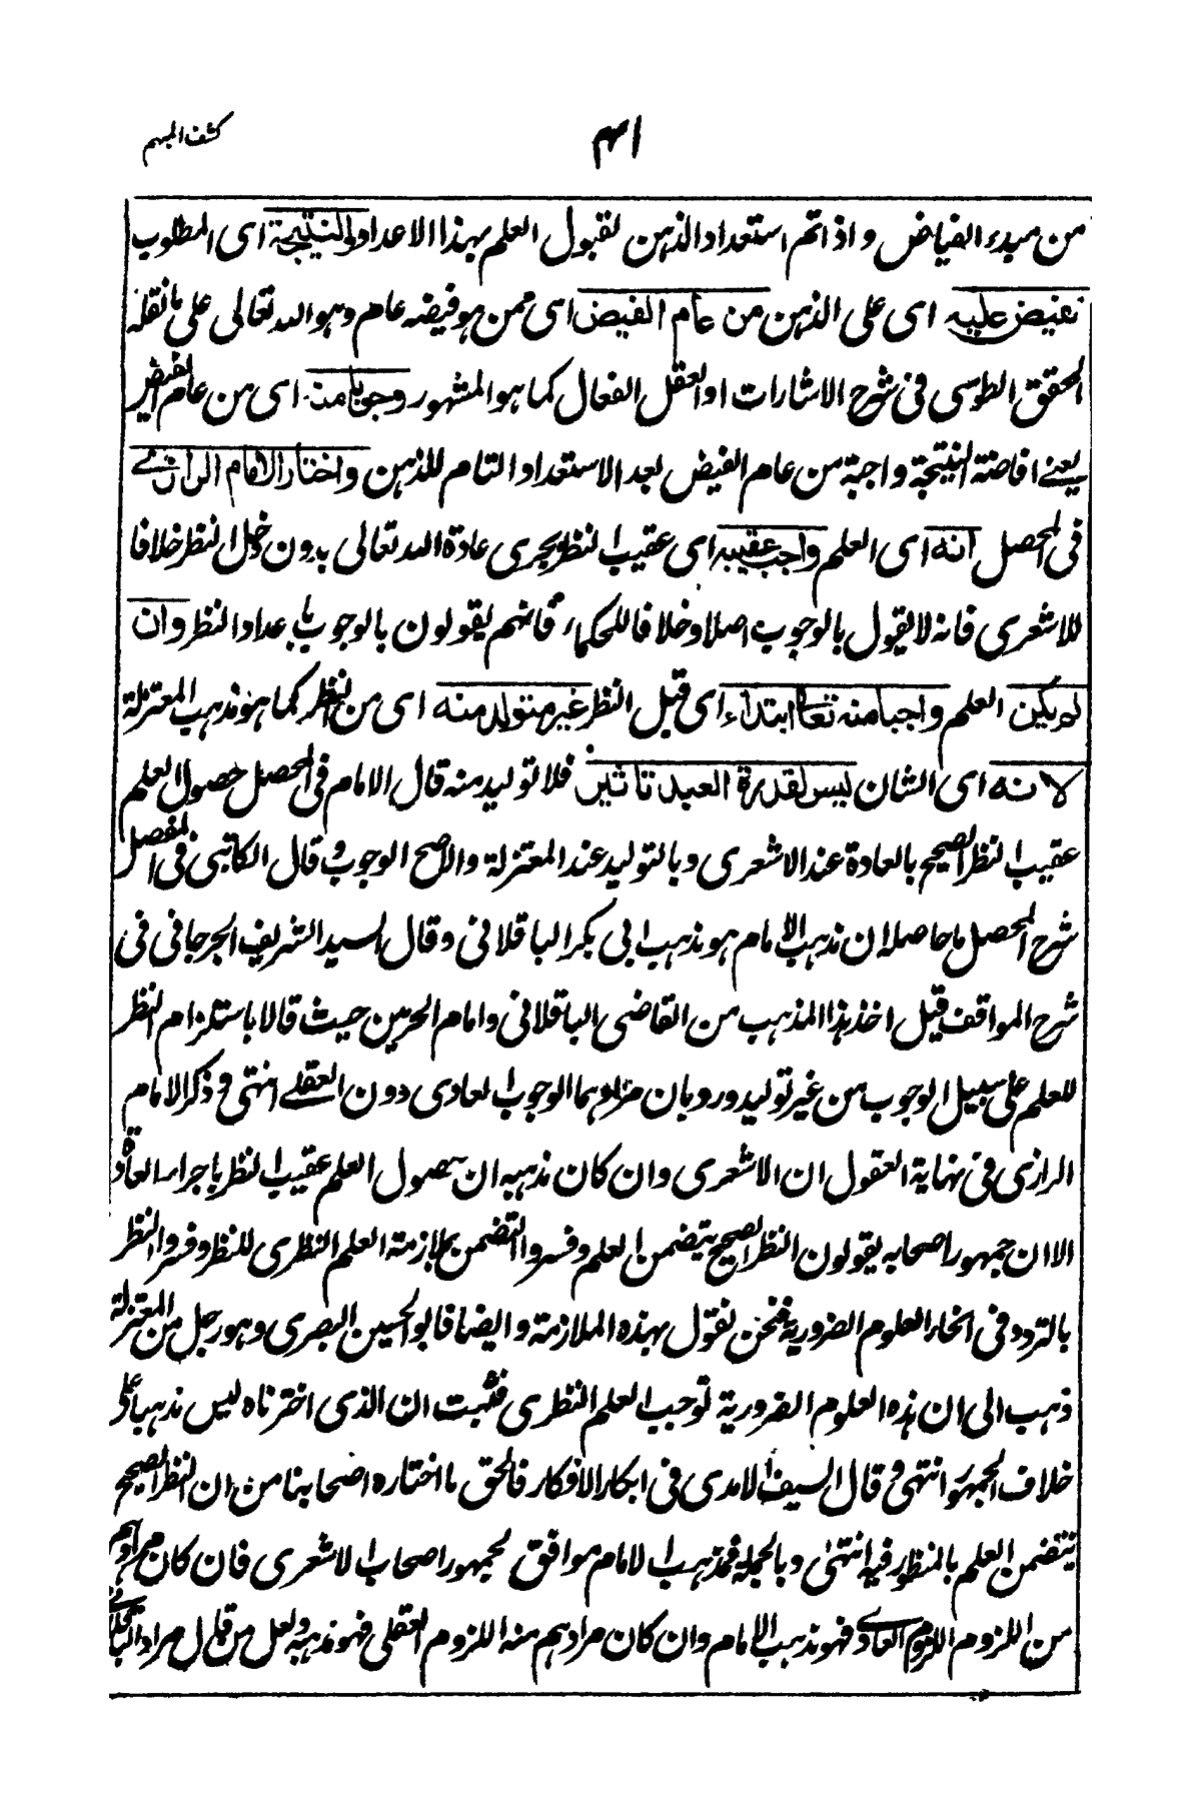 كشف المبهم
٣١
من مبدء الفياض واذا تم استعداد الذهن لقبول العلم بهذا الاعداد والنتيجة اى المطلوب
تفيض عليه اى على الذهن من عام الفيض اى ممن هو فيضه عام وهو الله تعالى على ما نقله
المحقق الطوسى فى شرح الاشارات او العقل الفعال كما هو المشهور وجوبا منه اى من عام الفيض
يعنے افاضة النتيجة واجبة من عام الفيض بعد الاستعداد التام للذهن واختار الامام الرازے
فى المحصل انه اى العلم واجب عقيبه اى عقيب النظر بجرى عادة الله تعالى بدون دخل النظر خلافا
للاشعرى فانه لا يقول بالوجوب اصلا وخلافا للحكماء فانهم يقولون بالوجوب باعداد النظر وان
لم يكن العلم واجبا منه تعالى ابتداء اى قبل النظر غير متولد منه اى من النظر كما هو مذهب المعتزلة
لانه اى الشان ليس لقدرة العبد تاثير فلا توليد منه قال الامام فى المحصل حصول العلم
عقيب النظر الصحيح بالعادة عند الاشعرى وبالتوليد عند المعتزلة والاصح الوجوب وقال الكاتبى فى المفصل
شرح المحصل ما حاصله ان مذهب الامام هو مذهب ابى بكر الباقلانى وقال السيد الشريف الجرجانى فى
شرح المواقف قيل اخذ هذا المذهب من القاضى الباقلانى وامام الحرمين حيث قالا باستلزام النظر
للعلم على سبيل الوجوب من غير توليد ورد بان مرادهما الوجوب العادى دون العقلے انتهى وذكر الامام
الرازى فى نهاية العقول ان الاشعرى وان كان مذهبه ان حصول العلم عقيب النظر باجراء العادة
الا ان جمهور اصحابه يقولون النظر الصحيح يتضمن العلم وفسروا التضمن بملازمة العلم النظرى للنظر وفسروا النظر
بالتردد فى انحاء العلوم الضرورية فنحن نقول بهذه الملازمة وايضا فابو الحسين البصرى وهو رجل من المعتزلة
ذهب الى ان هذه العلوم الضرورية توجب العلم النظرى فثبت ان الذى اخترناه ليس مذهبا على
خلاف الجمهور انتهى وقال السيف الامدى فى ابكار الافكار فالحق ما اختاره اصحابنا من ان النظر الصحيح
يتضمن العلم بالمنظور فيه انتهى وبالجملة فمذهب الامام موافق لجمهور اصحاب الاشعرى فان كان مرادهم
من اللزوم اللزوم العادے فهو مذهب الامام وان كان مرادهم منه اللزوم العقلى فهو مذهبه ولعل من قال مراد الباقلانے